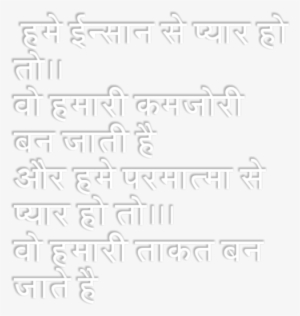 हमे ईन्सान से प्यार हो
तो॥
वो हमारी कमजोरी
बन जाती है
और हमे परमात्मा से
प्यार हो तो॥।
वो हमारी ताकत बन
जाते है